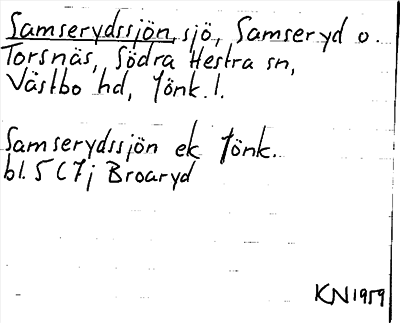 Samserydssjön, sjö, Samseryd o.
Torsnäs, Södra Hestra sn,
Västbo hd, Jönk. l.
Samserydssjön ek Jönk.
bl. 5 C7j Broaryd
KN 1959